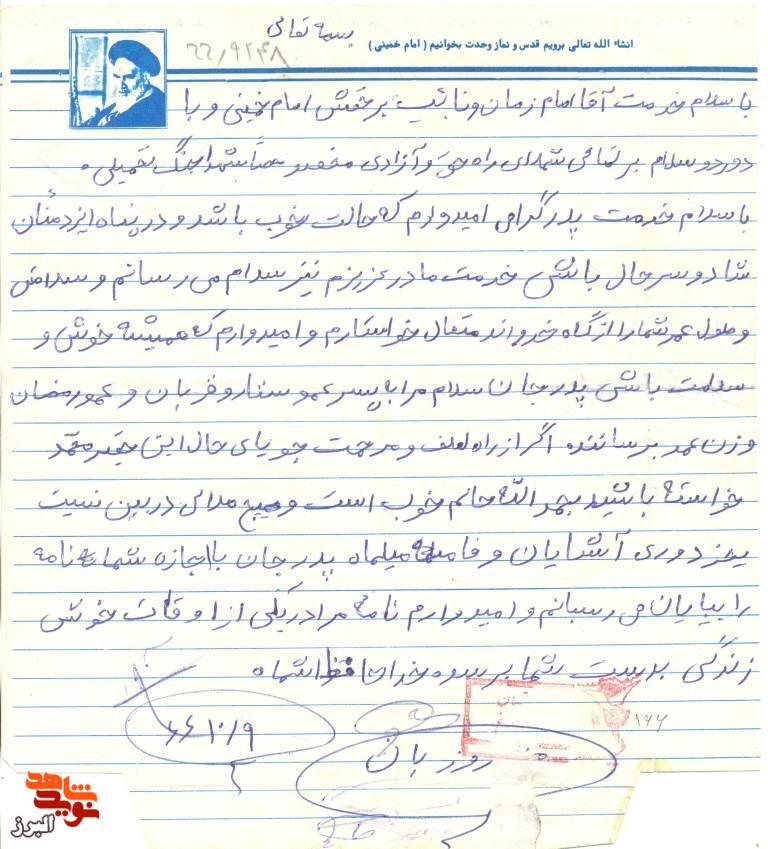 بسمه تعالی
انشاء الله تعالی برویم قدس و نماز وحدت بخوانیم (امام خمینی)
با سلام خدمت آقا امام زمان و نائب بر حقش امام خمینی و با
درود و سلام بر تمامی شهدای راه حق و آزادی مخصوصاً شهدا جنگ تحمیلی.
با سلام خدمت پدر گرامی امیدوارم که حالت خوب باشد و در پناه ایزد منان
شاد و سرحال باشی خدمت مادر عزیزم نیز سلام می رسانم و سلامتی
و طول عمر شما را از گاه خداوند متعال خواستارم و امیدوارم که همیشه خوش و
سلامت باشی پدر جان سلام مرا به پسر عمو ستار و قربان و عمو رمضان
و زن عمو برسانند اگر از راه لطف و مرحمت جویای حال این حقیر محمد
خواسته باشید بحمد الله حالم خوب است و هیچ ملالی در بین نسیت
بجز دوری آشنایان و فامیلها پدر جان با اجازه شما نامه
را بپایان می رسانم و امیدوارم نامه مرا در یکی از اوقات خوش
زندگی بدست شما برسد خدا حافظ شما
۶۴/۱۰/۹
روزبان
۱۶۶
شاهد
نوید
البرز